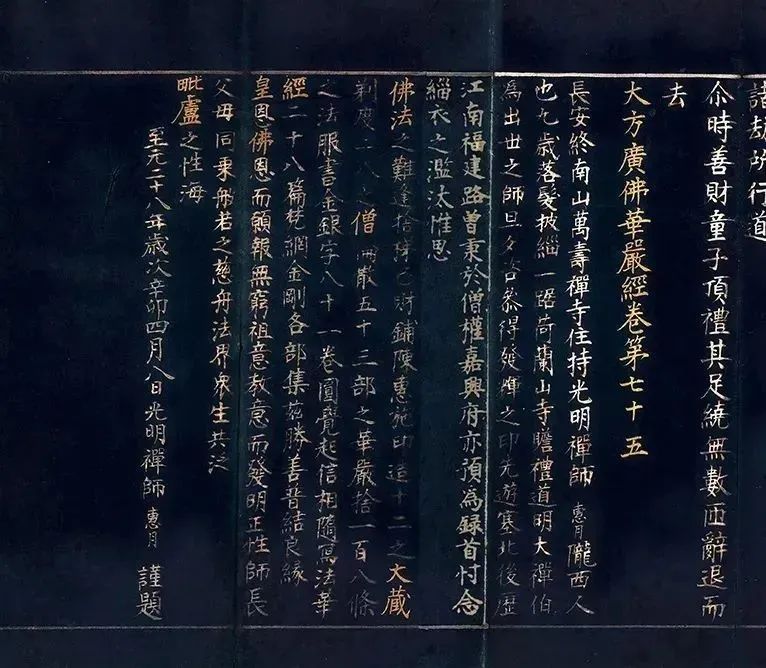 諸劫所行道
尒時善財童子頂禮其足繞無數匝辭退而
去
大方廣佛華嚴經卷第七十五
長安終南山萬壽禪寺住持光明禪師惠月隴西人
也九歲落髮披緇一踞奇蘭山寺瞻禮道明大禪伯
為出世之師旦夕咨叅得発揮之印先遊塞北後歷
江南福建路曽秉於僧權嘉興府亦預為録首忖念
緇衣之濫汰惟思
佛法之難逢捨梯己財鋪陳惠施印造十二之大藏
剃度二八之僧散五十三部之華嚴捨一百八條
之法服書金銀字八十一卷圓覺起信相隨寫法華
經二十八篇梵網金剛各部集玆勝善晋結良緣
皇恩佛恩而願報無窮祖意教意而發明正性師長
父母同乗般若之慈舟法界眾生共泛
毗盧之性海
至元二十八年歲次辛卯四月八日光明禪師惠月謹題